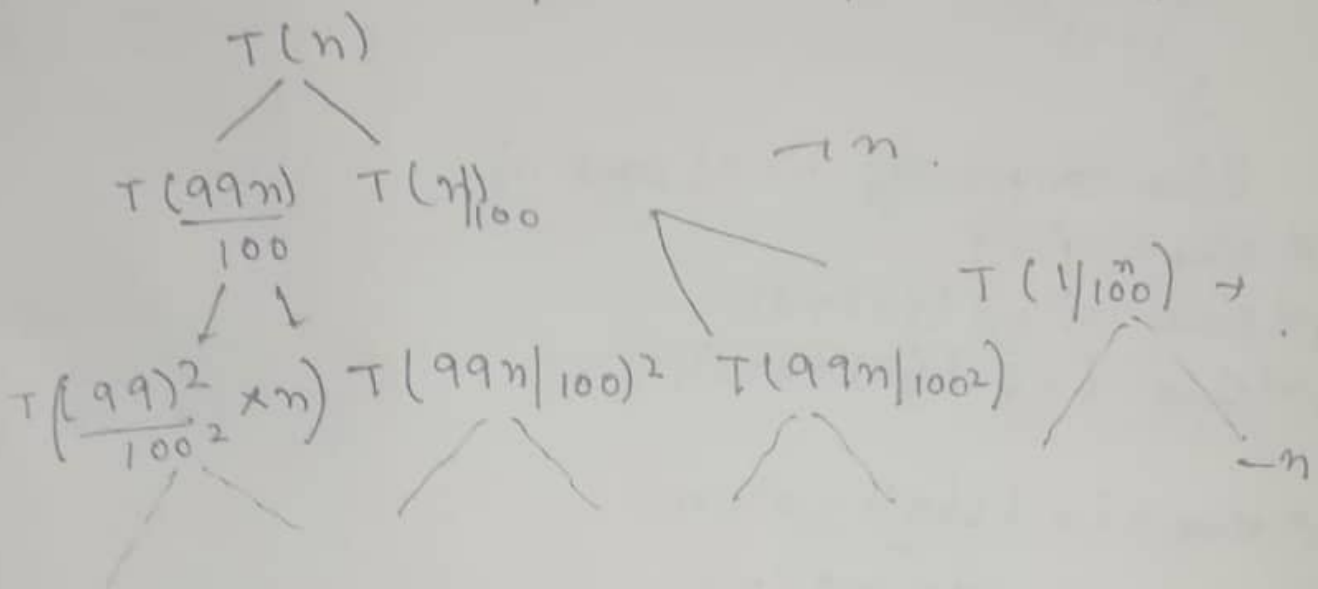 T(n)
T(99n)/100 T(n)/100 → n.
T(1/100^n) →
T((99)^2/100^2 × n) T(99n|100)^2 T(99n|100^2)
–n